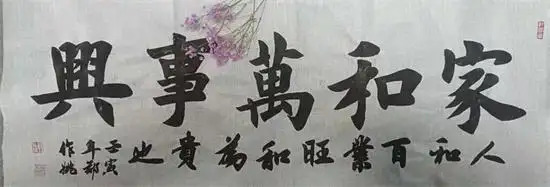 家和萬事興
人和百業旺和為貴也
壬寅
年鄒
作挑